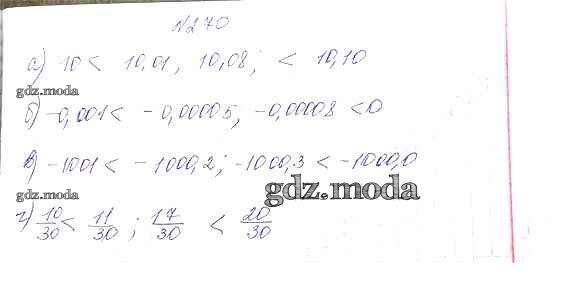 №270
а) 10 < 10,01, 10,08; < 10,10
gdz.moda
б) -0,001 < -0,00005, -0,00008 < 0
gdz.moda
в) -1001 < -1000,2; -1000,3 < -1000,0
gdz.moda
gdz.moda
г) 10/30 < 11/30 ; 17/30 < 20/30